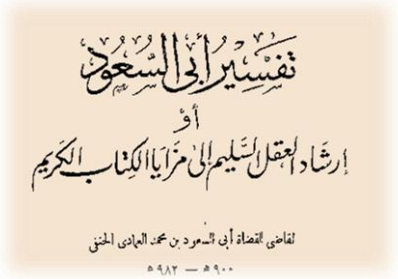 تفسير أبي السعود
أو
إرشاد العقل السليم إلى مزايا الكتاب الكريم
لقاضي القضاة أبي السعود بن محمد العمادي الحنفي
٩٠٠ه — ٩٨٢ه